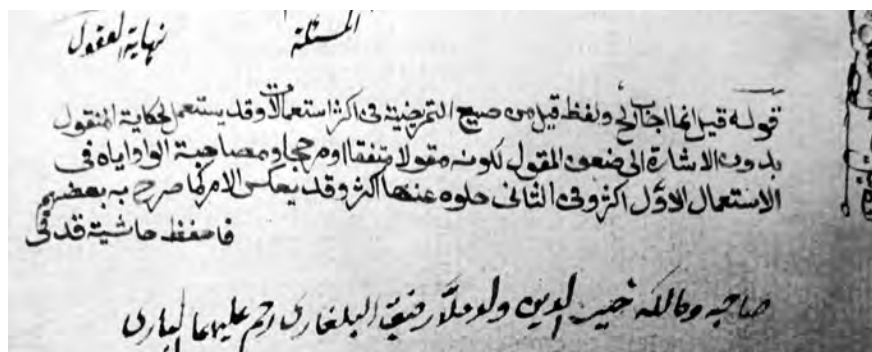 المسئلة نهاية العقول
قوله قيل انما اجاب الخ ولفظ قيل من صيغ التمريضية فى اكثر استعمالات وقد يستعمل لحكاية المنقول
بدون الاشارة الى ضعف المقول لكونه مقولا متفقا او مرجحا ومصاحبة الواو اياه فى
الاستعمال الاول اكثر وفى الثانى خلوه عنها اكثر وقد يعكس الامر كما صرح به بعضهم
فاحفظ حاشية قدقى
صاحبه ومالكه خير الدين ولد ملا رفيق البلغارى رحم عليهما البارى